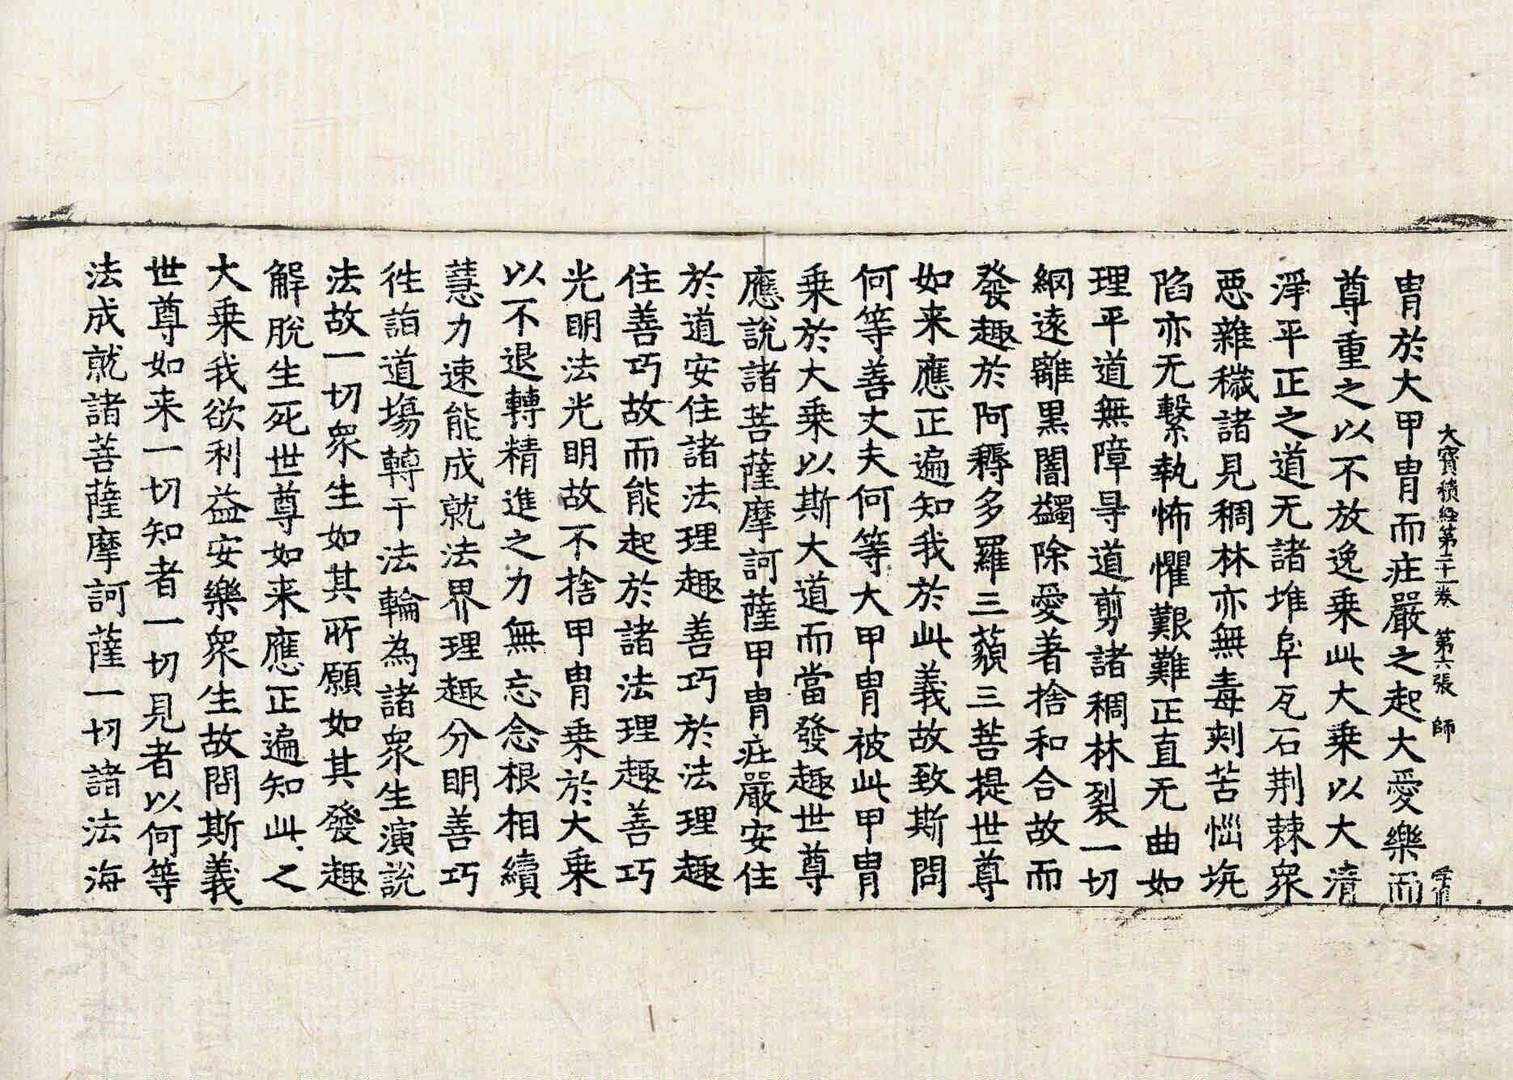 大寶積經第二十一卷　第六張　師
冑於大甲冑而庄嚴之起大愛樂而
尊重之以不放逸乘此大乘以大清
淨平正之道无諸堆阜瓦石荆棘衆
惡雜穢諸見稠林亦無毒刺苦惱坑
陷亦无繫執怖懼艱難正直无曲如
理平道無障㝵道剪諸稠林裂一切
網遠離黒闇蠲除愛著捨和合故而
發趣於阿耨多羅三藐三菩提世尊
如来應正遍知我於此義故致斯問
何等善丈夫何等大甲冑被此甲冑
乗於大乗以斯大道而當發趣世尊
應說諸菩薩摩訶薩甲冑庄嚴安住
於道安住諸法理趣善巧於法理趣
住善巧故而能起於諸法理趣善巧
光明法光明故不捨甲冑乗於大乗
以不退轉精進之力無忘念根相續
慧力速能成就法界理趣分明善巧
徃詣道場轉于法輪為諸衆生演說
法故一切衆生如其所願如其發趣
解脫生死世尊如来應正遍知此之
大乗我欲利益安樂衆生故問斯義
世尊如来一切知者一切見者以何等
法成就諸菩薩摩訶薩一切諸法海